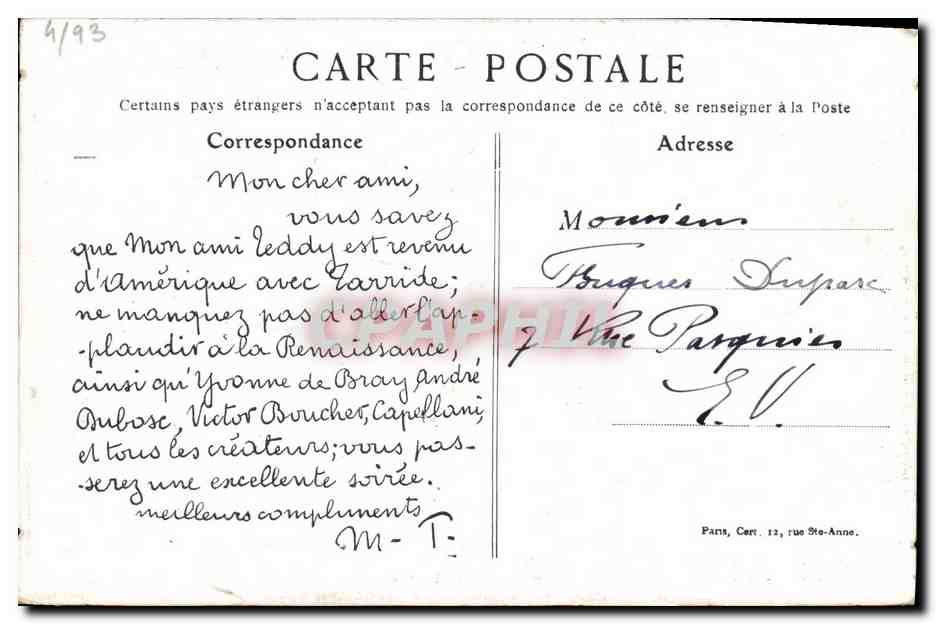 4/93
CARTE - POSTALE
Certains pays étrangers n'acceptant pas la correspondance de ce côté, se renseigner à la Poste
Correspondance
Mon cher ami,
vous savez
que Mon ami Teddy est revenu
d'Amérique avec Tarride;
ne manquez pas d'aller l'ap-
-plaudir à la Renaissance,
ainsi qu'Yvonne de Bray, André
Dubosc, Victor Boucher, Capellani,
et tous les créateurs; vous pas-
-serez une excellente soirée.
meilleurs compliments
M-T-
Adresse
Monsieur
Duparc
7 Rue Pasquier
E.V.
Paris, Cert. 12, rue Ste-Anne.
CPAPHIL